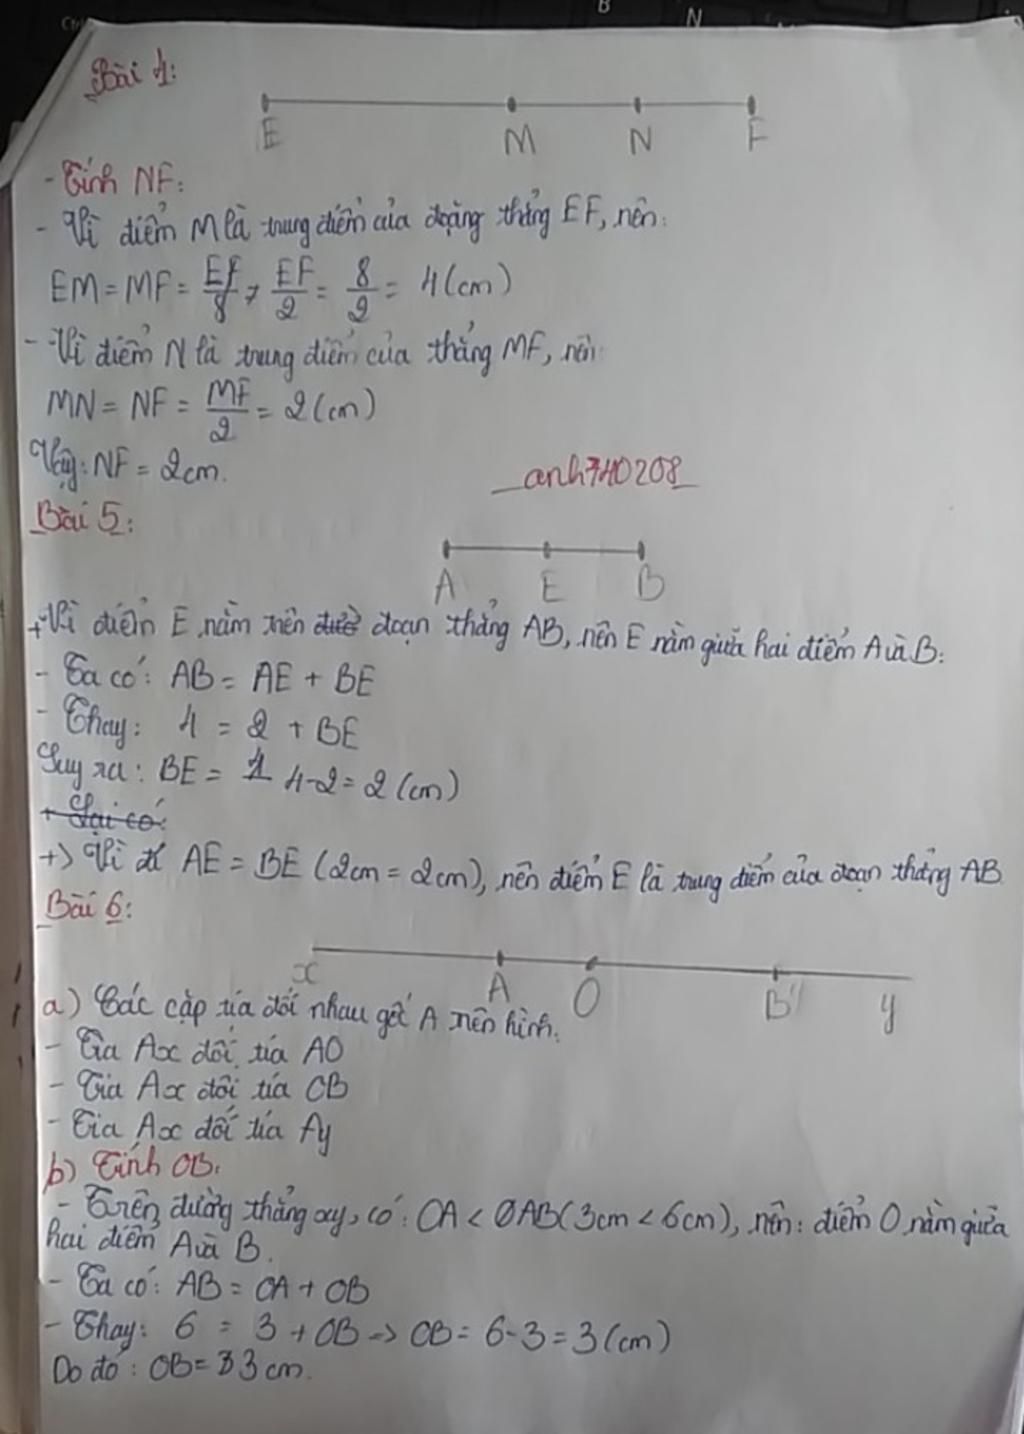 Bài 4:
E M N F
- Tính NF:
- Vì điểm M là trung điểm của đoạng thẳng EF, nên:
EM = MF = EF/8, EF/2 = 8/2 = 4 (cm)
- Vì điểm N là trung điểm của thẳng MF, nên:
MN = NF = MF/2 = 2 (cm)
Vậy: NF = 2cm.
anh740208
Bài 5:
A E B
+ Vì điểm E nằm trên đoạn thẳng AB, nên E nằm giữa hai điểm A và B:
- Ta có: AB = AE + BE
- Thay: 4 = 2 + BE
Suy ra: BE = 4-2 = 2 (cm)
+ Lại có:
+) Vì AE = BE (2cm = 2cm), nên điểm E là trung điểm của đoạn thẳng AB
Bài 6:
x A O B y
a) Các cặp tia đối nhau gốc A trên hình.
- Tia Ax đối tia AO
- Tia Ax đối tia OB
- Tia Ax đối tia Ay
b) Tính OB:
- Trên đường thẳng xy, có: OA < AB (3cm < 6cm), nên: điểm O nằm giữa
hai điểm A và B.
- Ta có: AB = OA + OB
- Thay: 6 = 3 + OB -> OB = 6-3 = 3 (cm)
Do đó: OB = 3cm.